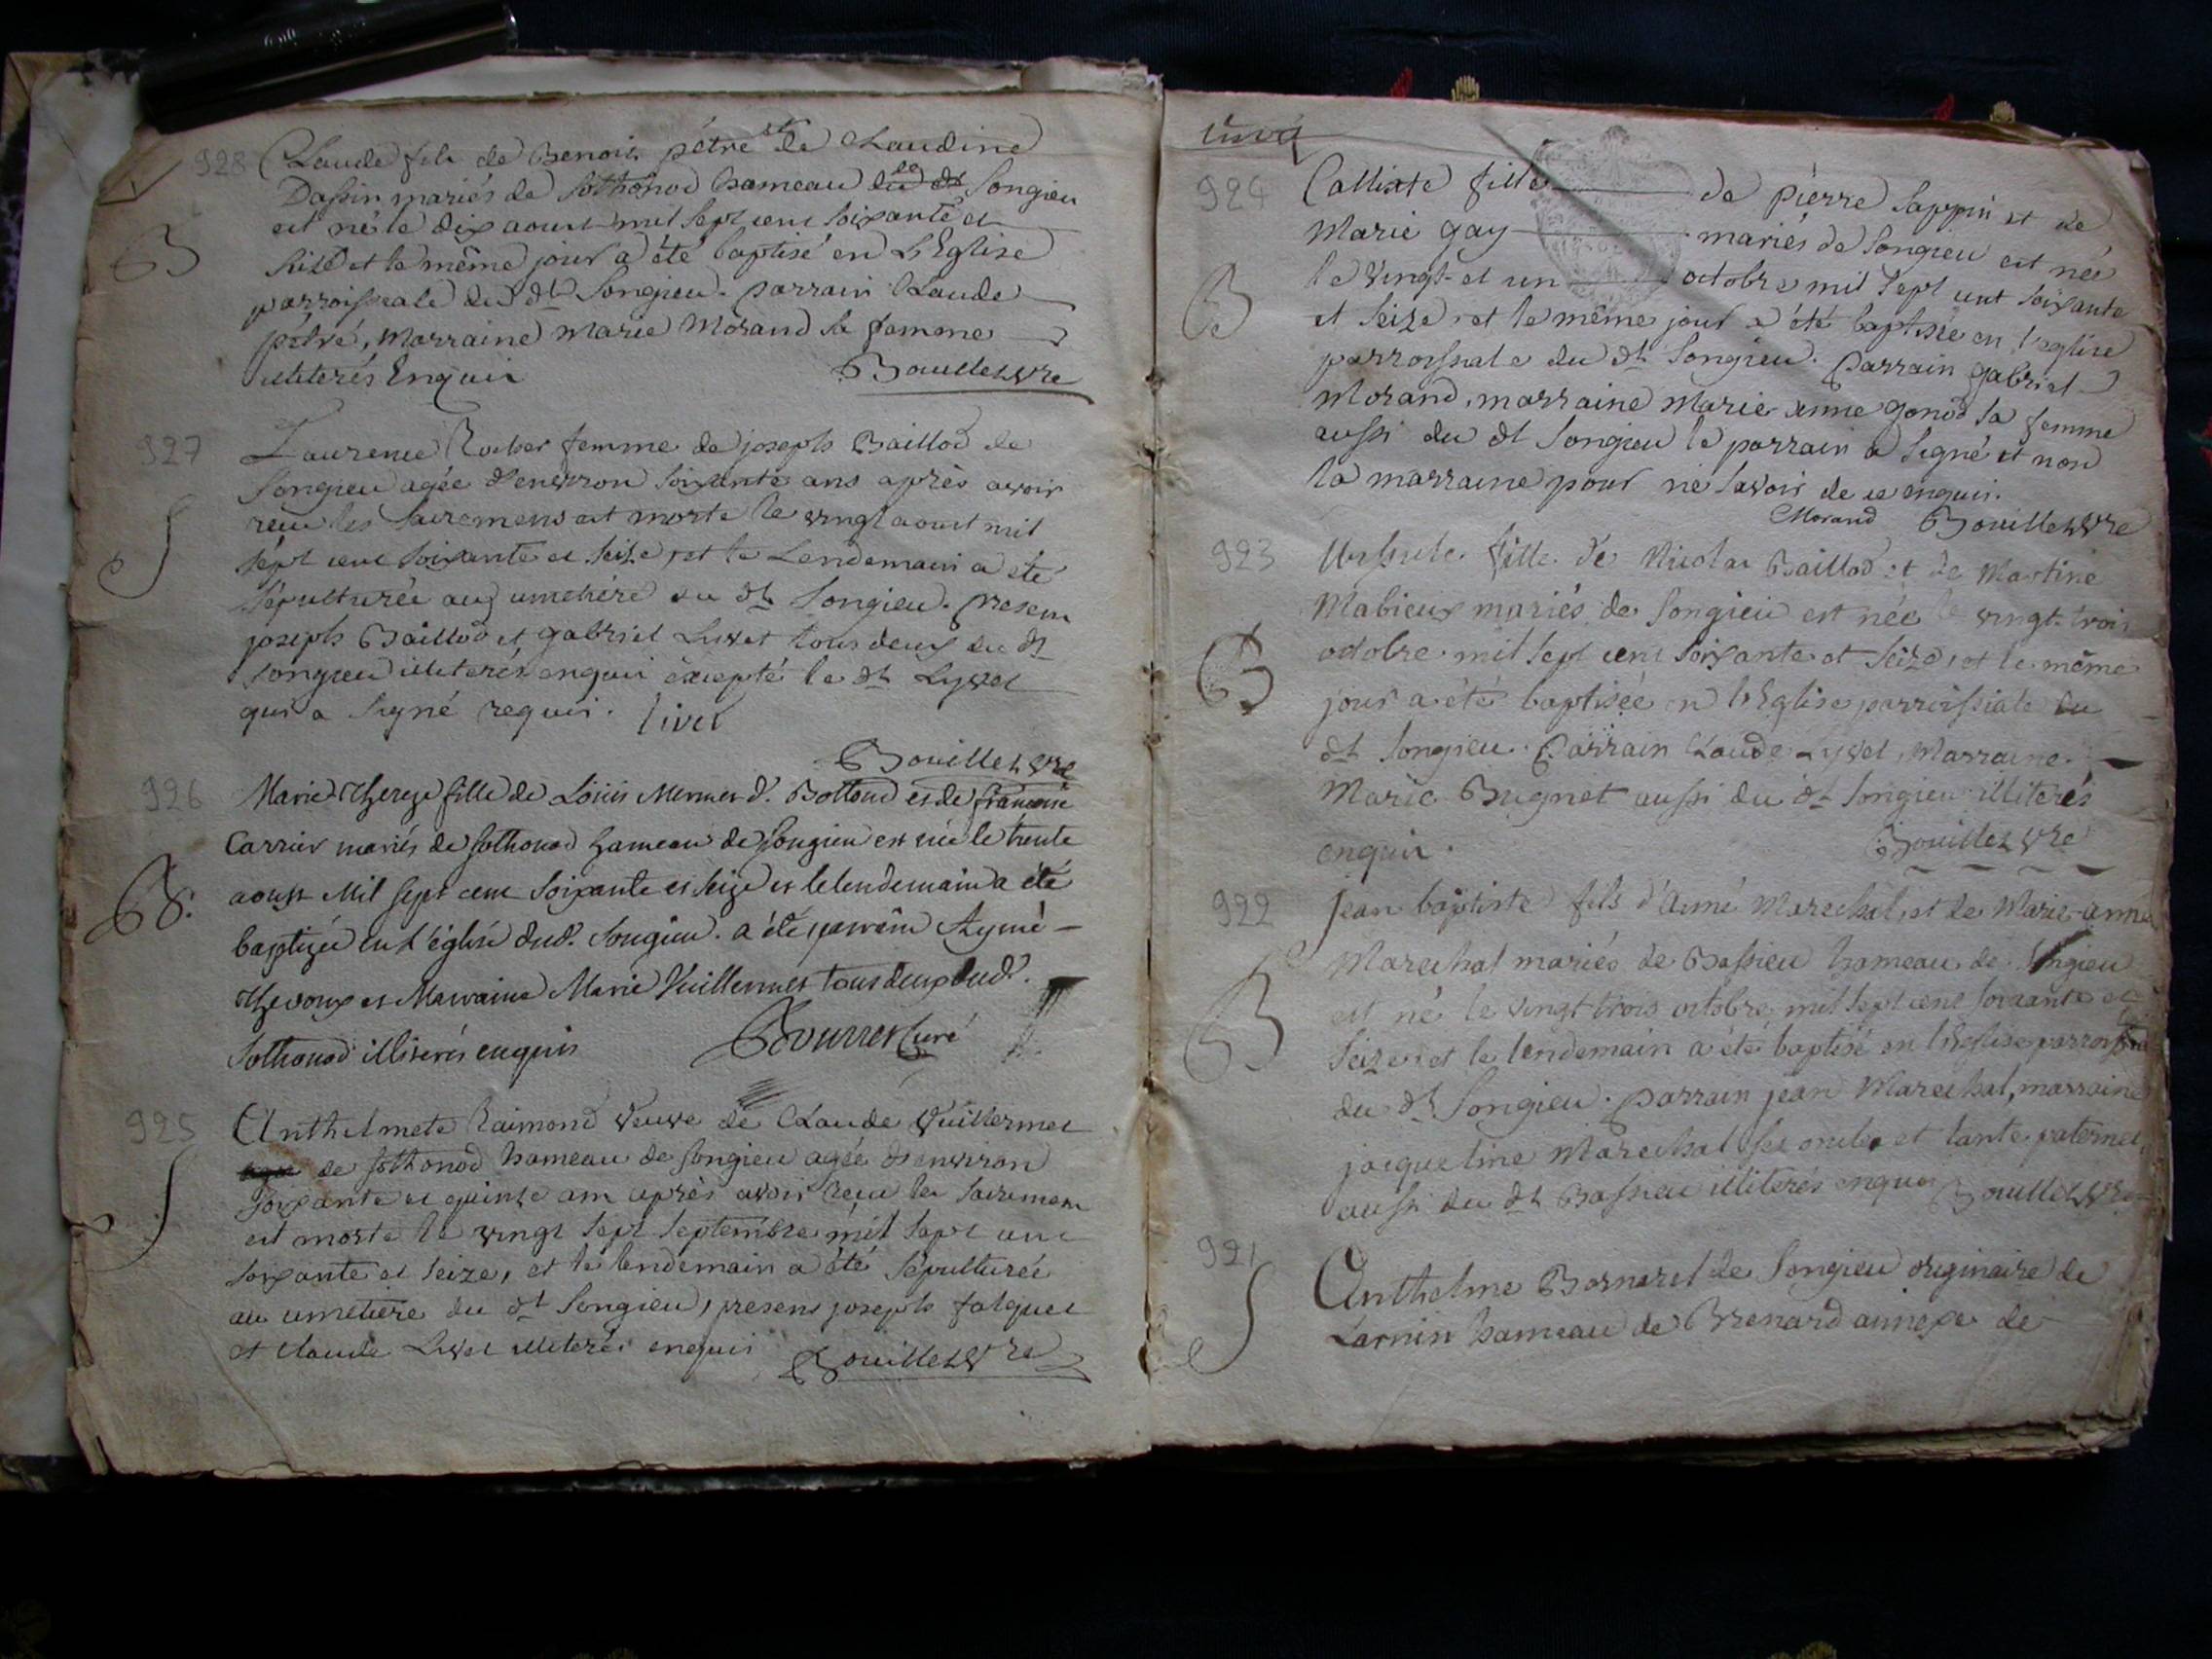 928 Claude fils de Benoit pétre et de Claudine
Dassin mariés de Sothonod hameau du dt de Songieu
est né le dix aoust mil sept cent soixante et
seize et le même jour a été baptisé en L'Eglise
B
parroissiale du dt Songieu. parrain Claude
pétre, Marraine Marie Morand sa femme
illiterés Enquis Bouillet vre
927 Laurence Rocher femme de joseph Baillod de
Songieu agée d'environ soixante ans après avoir
reçu les sacremens est morte le vingt aoust mil
S
sept cent soixante et seize, et le Lendemain a été
sépulturée au cimetière du dt Songieu. presens
joseph Baillod et gabriel Livet tous deux du dt
Songieu illiterés enquis excepté le dt Lyvet
qui a signé requis. livet
Bouillet vre
926 Marie Thereze fille de Loüis Mermet d. Bottond et de françoise
Carrier mariés de Sothonod hameau de Songieu est née le trente
B.
aoust Mil sept cent soixante et seize et le lendemain a été
baptizée en L'église dud. Songieu. a été parrain Aymé
Thevoux et Marraine Marie Vuillermet tous deux dud.
Sothonod illiterés enquis Bourret Curé
925 Anthelmete Raimond veuve de Claude Vuillermet
de Sothonod hameau de Songieu agée d'environ
S
soixante et quinze ans après avoir reçu les sacremens
est morte le vingt sept septembre mil sept cent
soixante et seize, et le lendemain a été sépulturée
au cimetiere du dt Songieu, presens joseph falquet
et claude Livet illiterés enquis Bouillet vre
cinq
924 Callixte fille de pierre sappin et de
Marie gay mariés de Songieu est née
B
le vingt et un octobre mil sept cent soixante
et seize, et le même jour a été baptisée en l'eglise
parroissiale du dt Songieu. Parrain gabriel
Morand, marraine Marie-anne gonod sa femme
aussi du dt Songieu le parrain a signé et non
la marraine pour ne savoir de ce enquis.
Morand Bouillet vre
923 Urssule fille de Nicolas Baillod et de Martine
Mabieux mariés de Songieu est née le vingt-trois
B
octobre mil sept cent soixante et seize, et le même
jour a été baptisée en l'Eglise parroissiale du
dt Songieu. Parrain Claude Lyvet, Marraine
Marie Bugnet aussi du dt Songieu illiterés
enquis. Bouillet vre
922 jean baptiste fils d'aimé Marechal, et de Marie-anne
Marechal mariés de Bassieu hameau de Songieu
B
est né le vingt trois octobre mil sept cent soixante et
seize, et le lendemain a été baptisé en l'Eglise parroissiale
du dt Songieu. parrain jean Marechal, marraine
jacqueline Marechal ses oncle et tante paternels
aussi du dt Bassieu illiterés enquis Bouillet vre
921 Anthelme Bornarel de Songieu originaire de
S
Larnin hameau de Brenard annexe de